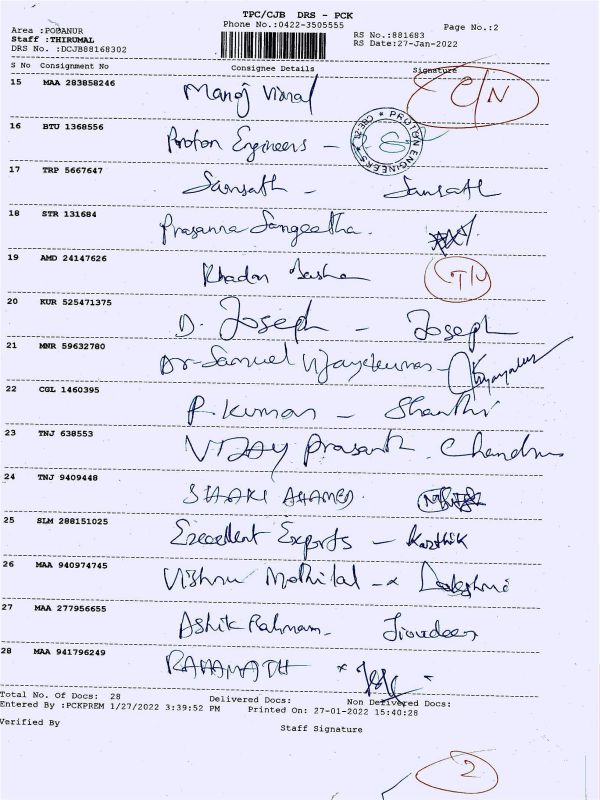 TPC/CJB DRS - PCK
Phone No.:0422-3505555
Page No.:2
Area :PODANUR
Staff :THIRUMAL
DRS No. :DCJB88168302
RS No.:881683
RS Date:27-Jan-2022
S No Consignment No Consignee Details Signature
15 MAA 283858246 Manoj C/N
16 BTU 1368556 Proton Engineers - PROTON ENGINEERS
17 TRP 5667647 Sansath - Sansath
18 STR 131684 Prasanna Sangeetha.
19 AMD 24147626 Khadar Basha
20 KUR 525471375 D. Joseph - Joseph
21 MNR 59632780 Dr-Samuel Vijayakumar-
22 CGL 1460395 P. Kumar - Shanthi
23 TNJ 638553 VIJAY Prasanth. Chandru
24 TNJ 9409448 AHAMED
25 SLM 288151025 Excellent Exports - Karthik
26 MAA 940974745 Vishnu Mothilal - Lakshmi
27 MAA 277956655 Ashik Rahman-
28 MAA 941796249 RAHAMATH
Total No. Of Docs: 28 Delivered Docs: Non Delivered Docs:
Entered By :PCKPREM 1/27/2022 3:39:52 PM Printed On: 27-01-2022 15:40:28
Verified By Staff Signature
2